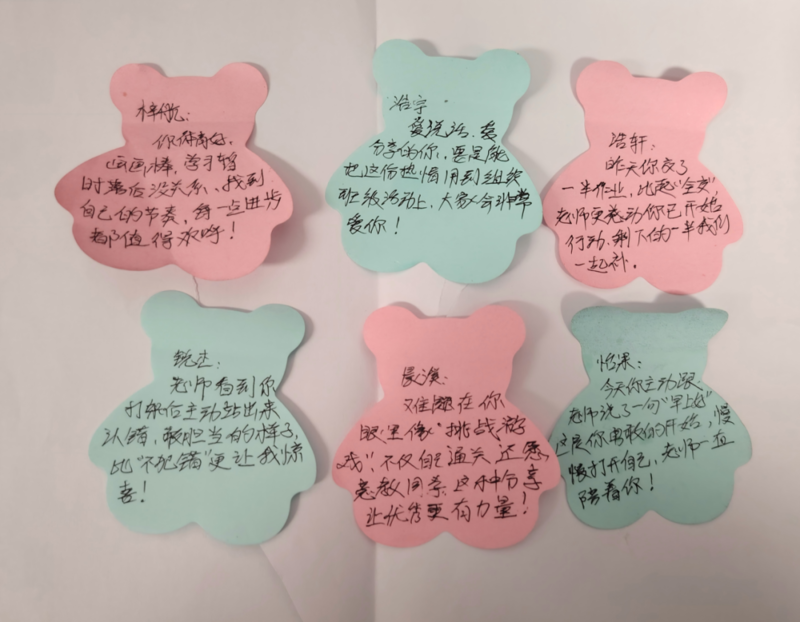 梓航:
你体育好、
画画棒,学习暂
时落后没关系、找到
自己的节奏,每一点进步
都值得欢呼!
浩宇
爱说话、爱
分享的你,要是能
把这份热情用到组织
班级活动上,大家会非常
爱你!
浩轩:
昨天你交了
一半作业,比起"全交",
老师更感动你已开始
行动.剩下的一半我们
一起补.
锐杰:
老师看到你
打架后主动站出来
认错,敢担当的样子,
比"不犯错"更让我惊
喜!
晨溪:
难题在你
眼里像"挑战游
戏",不仅自己通关,还愿
意教同学.这种分享
让优秀更有力量!
怡涵:
今天你主动跟
老师说了一句"早上好"
这是你勇敢的开始,慢
慢打开自己,老师一直
陪着你!